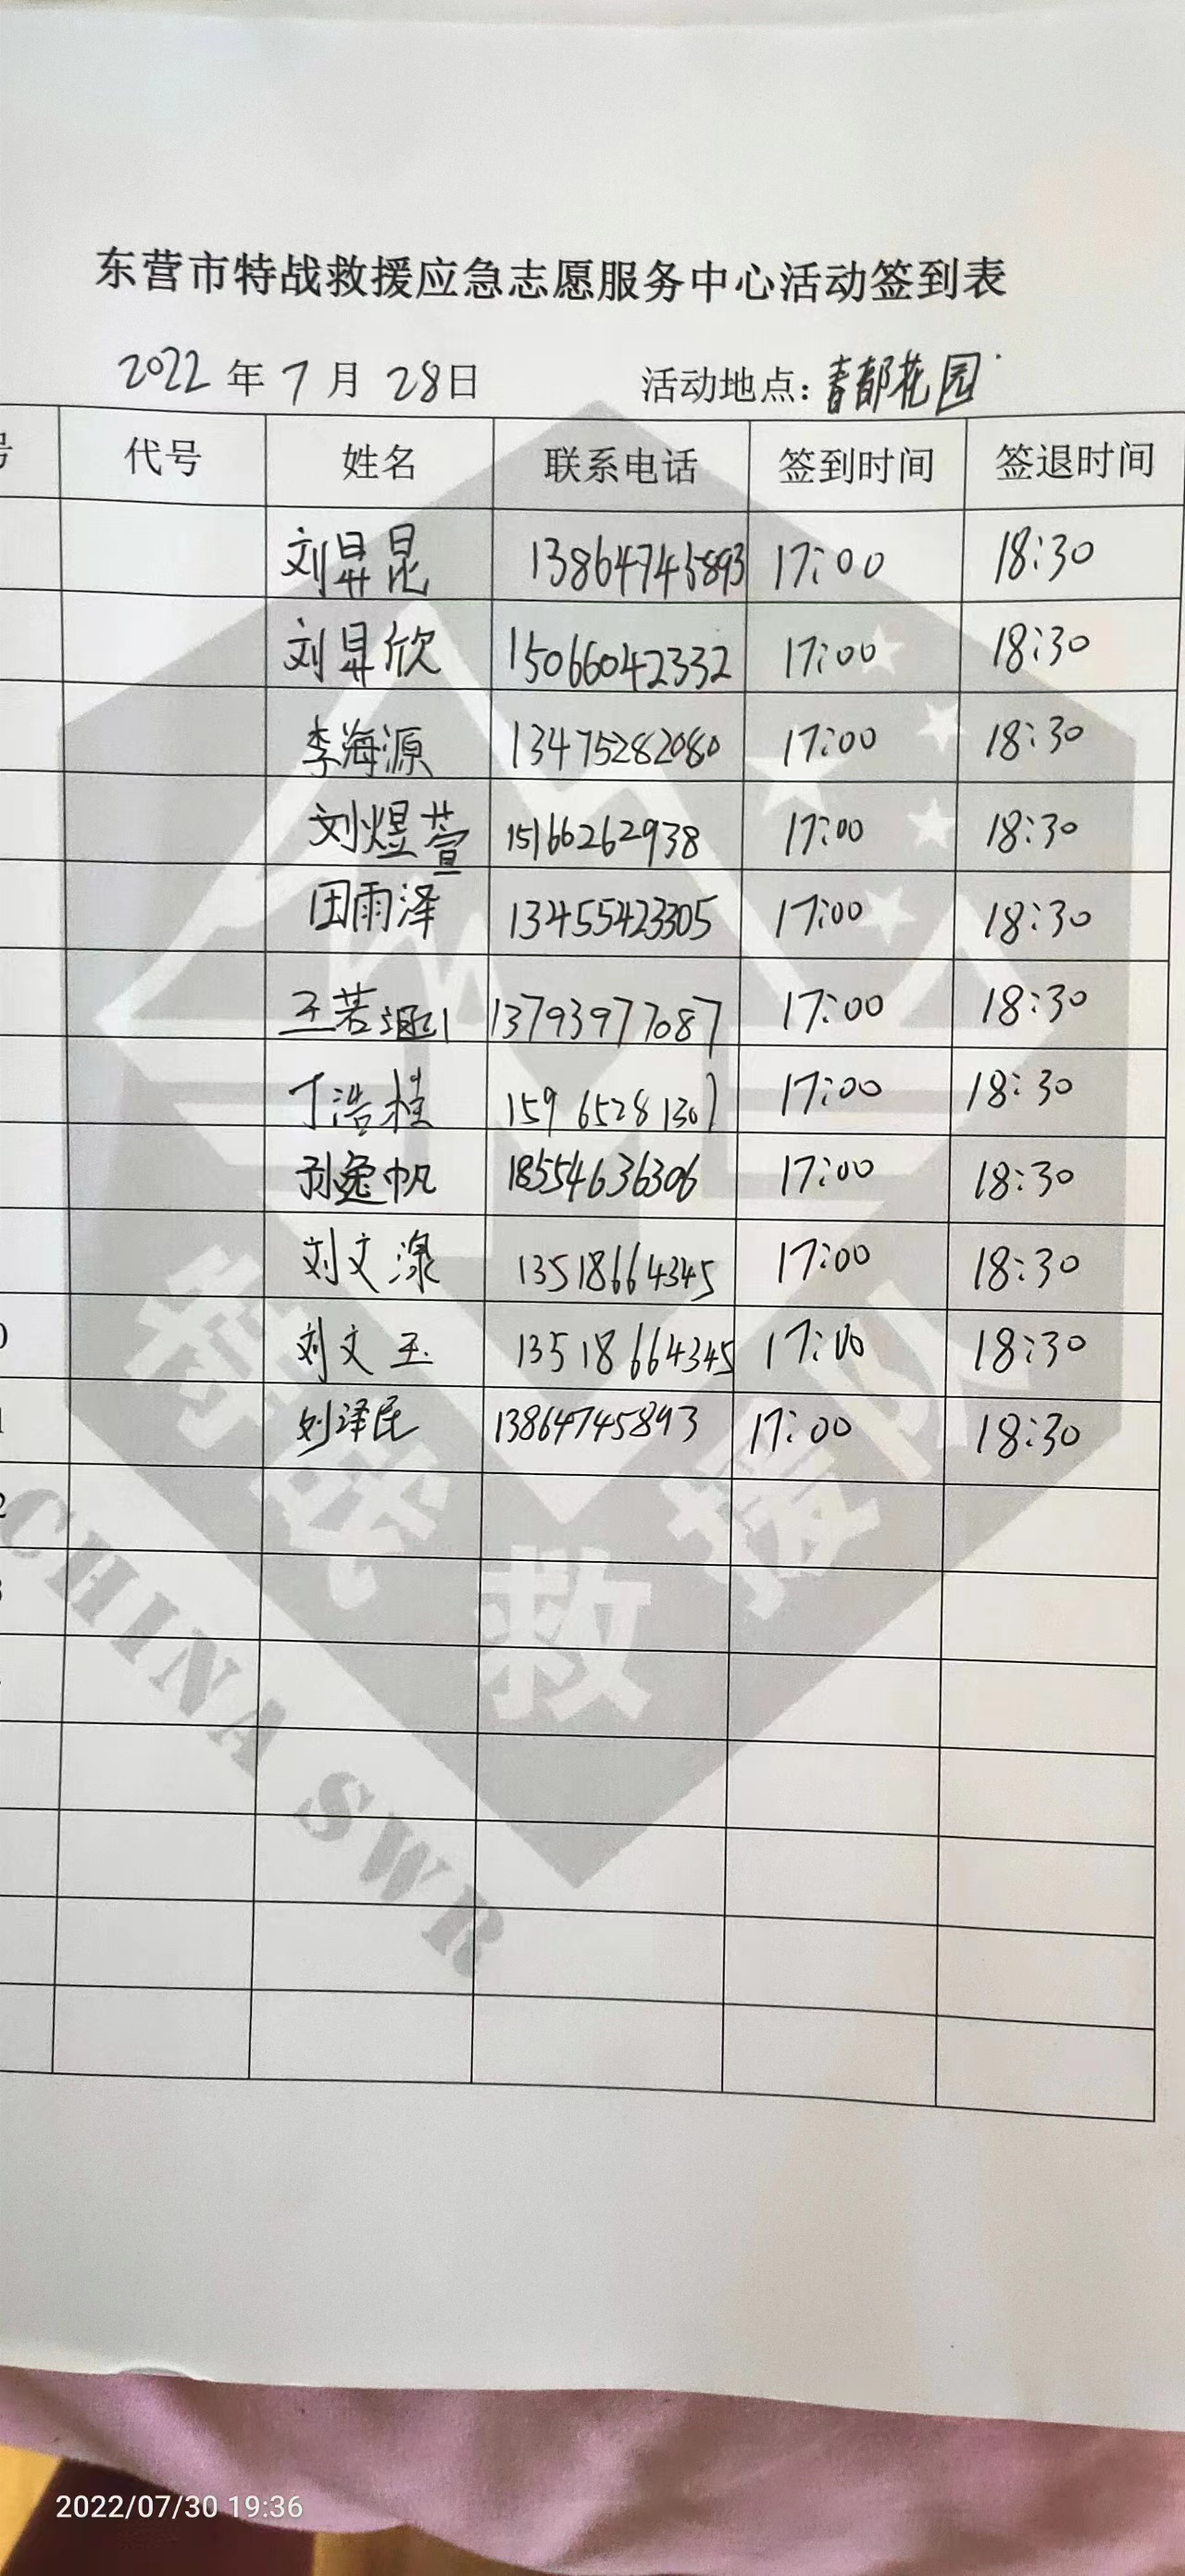 东营市特战救援应急志愿服务中心活动签到表
2022 年 7 月 28 日 活动地点: 青都花园
号 代号 姓名 联系电话 签到时间 签退时间
刘昇昆 13864745893 17:00 18:30
刘昇欣 15066042332 17:00 18:30
李海源 13475282080 17:00 18:30
刘煜萱 15166262938 17:00 18:30
田雨泽 13455423305 17:00 18:30
王若 13793977087 17:00 18:30
丁浩桂 15965281307 17:00 18:30
孙逸帆 18554636306 17:00 18:30
刘文濠 13518664345 17:00 18:30
0 刘文玉 13518664345 17:00 18:30
1 刘泽民 13864745893 17:00 18:30
2
3
特战救援队
CHINA SWR
2022/07/30 19:36